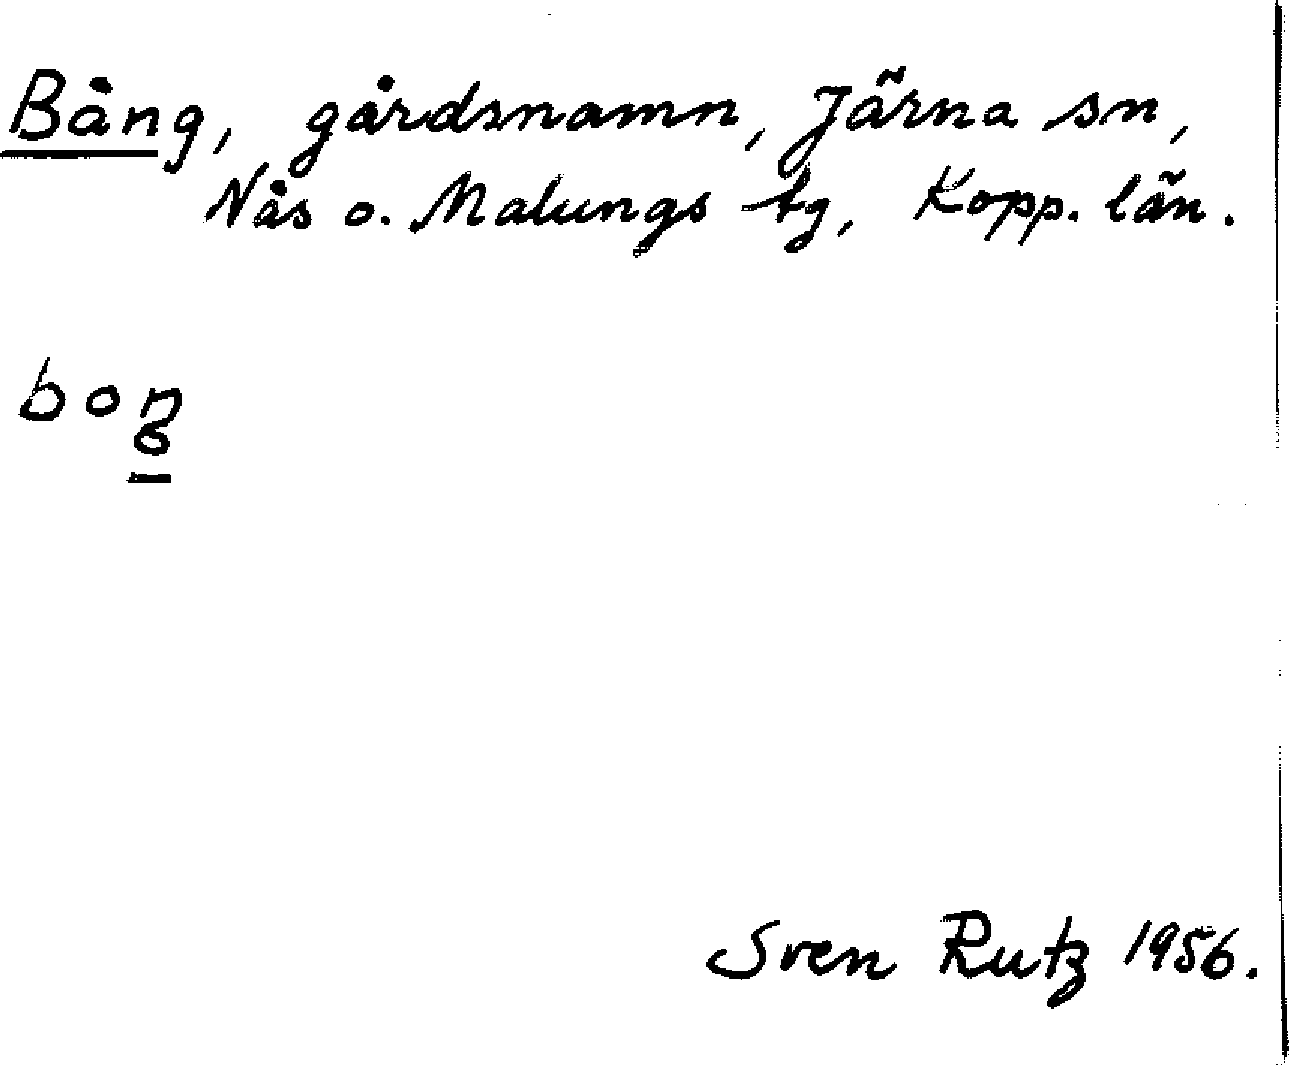 Bång, gårdsnamn, Järna sn,
Nås o. Malungs tg, Kopp. län.
boŋ
Sven Rutz 1956.